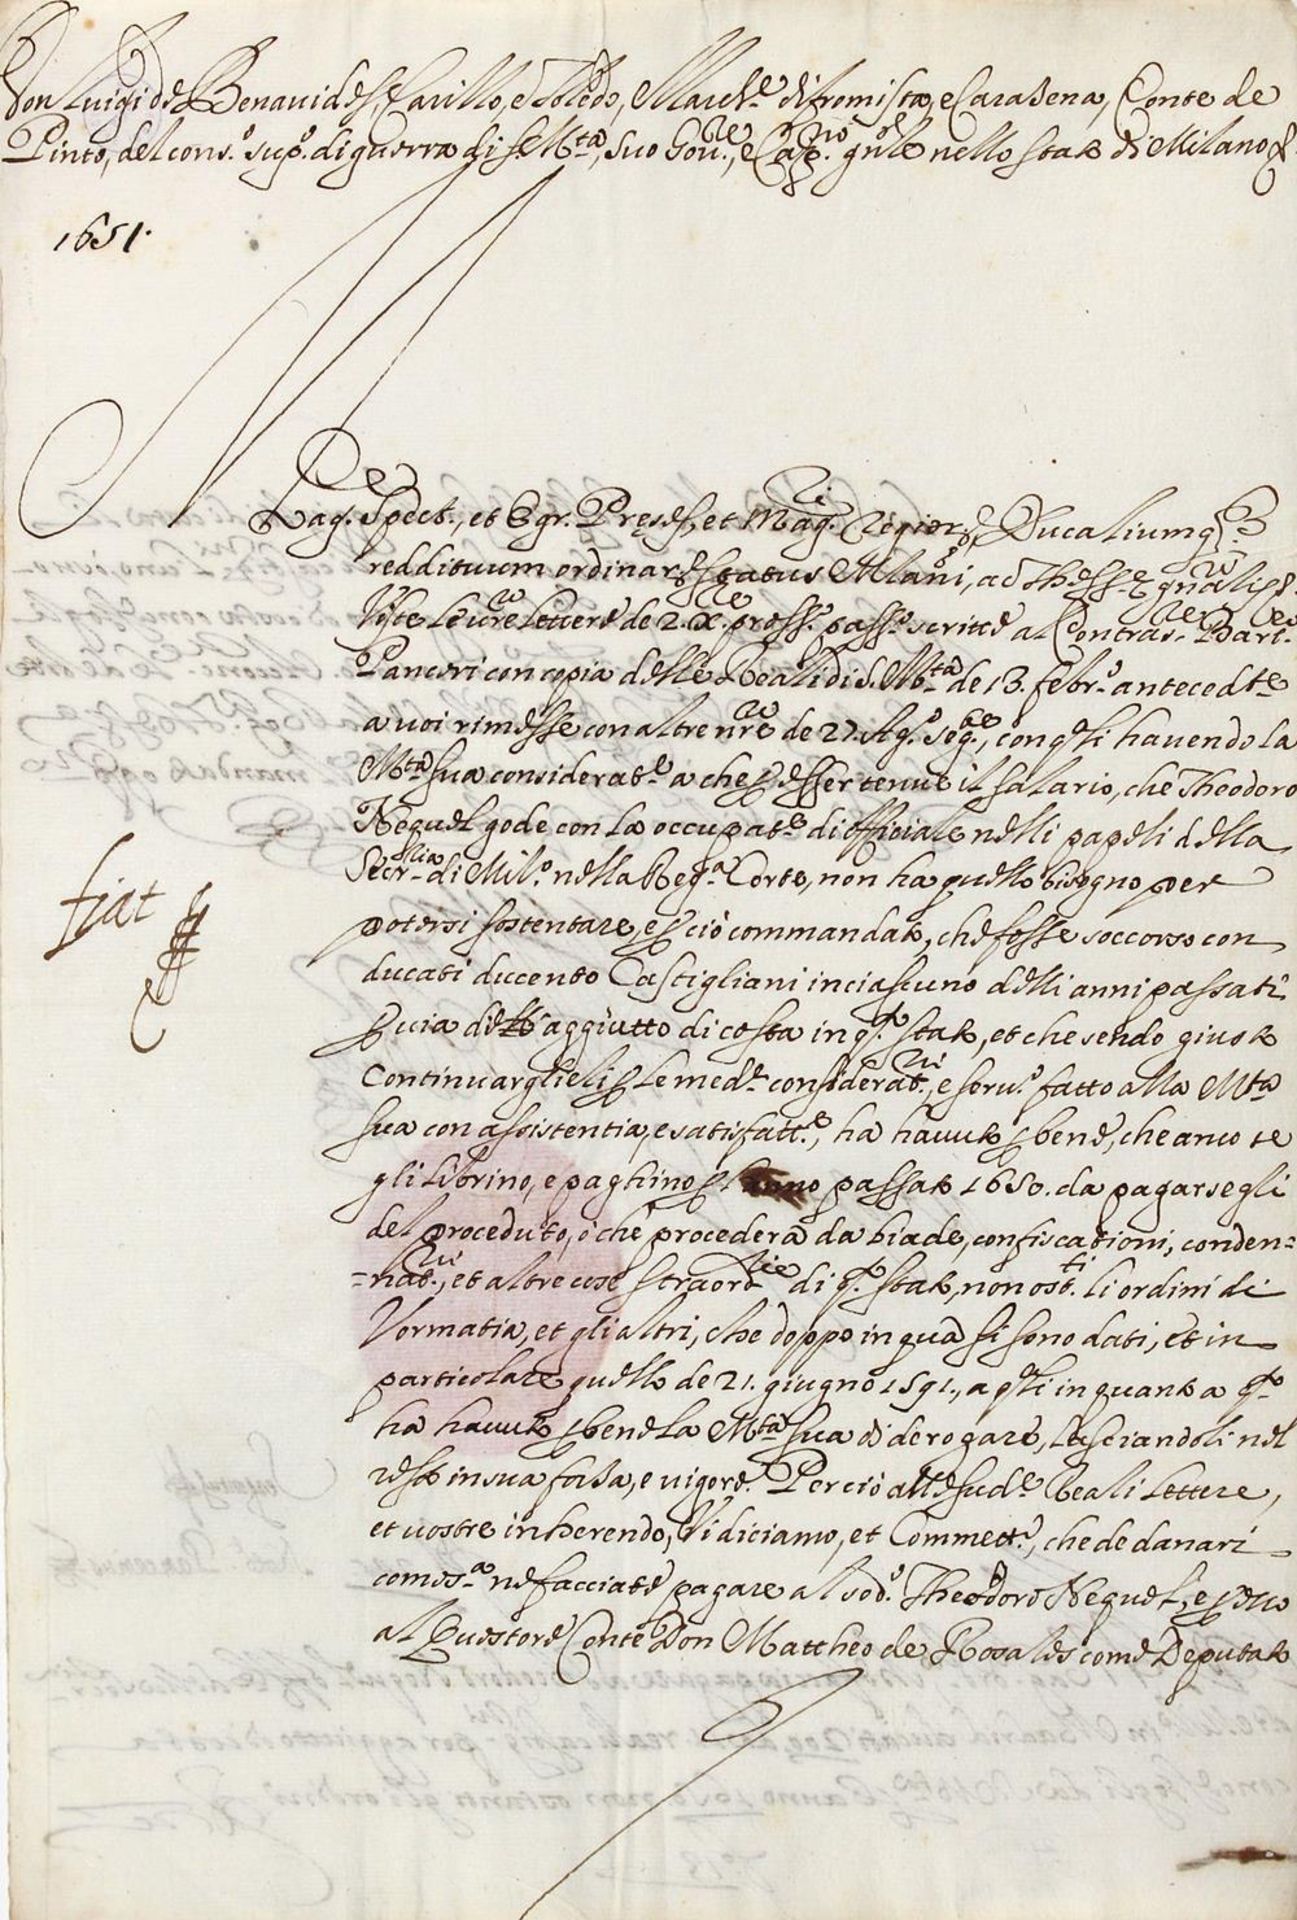 Don Luigi de Benauides, Carillo, e Toledo, March.e di fromista, e Carasena, Conte de
Pinto, del cons.o sup.o di guerra di S. M.tà, suo Gou.re, e Cap.no g.nle nello stato di Milano &
1651.
Mag. Spect., et Egr. Preses, et Mag.ci Regior., Ducaliumq.
reddituum ordinar. status Mlani, ac Thess. gnalis.
Viste le vre lettere de 2. X.re pross.o pass.o scritte al Contras.re Bart.eo
Panceri con copia delle Reali di S. M.tà de 13. febr.o anteced.te
a uoi rimesse con altre nre de 27. Ag.o seg.te, con q.li hauendo la
M.tà sua considerat.e a che p esser tenue il salario, che Theodoro
Nequel gode con la occupat.e di officiale nelli papeli della
Secr.ria di Mil.o nella Reg.a Corte, non ha quello bisogno per
potersi sostentare, e p ciò commandato, che fosse soccorso con
ducati ducento Castigliani in ciascuno delli anni passati
p uia di aggiutto di costa in q.to stato, et che sendo giusto
Continuarglieli p le med.e considerat.ni, e seru.o fatto alla M.tà
sua con assistentia, e satisfatt.e, ha hauuto p bene, che anco se
gli librino, e paghino p l'anno passato 1650. da pagarsegli
del proceduto, ò che procederà da biade, confiscationi, conden=
=nat.ni, et altre cose straord.rie di q.to stato, non ost.ti li ordini di
Vormatia, et gli altri, che doppo in quà si sono dati, et in
particolare quello de 21. giugno 1591., a q.li in quanto a q.to
ha hauuto p bene la M.tà sua di derogare, lasciandoli nel
resto in sua forza, e uigore. Perciò alle sud.e Reali lettere,
et uostre inherendo, Vi diciamo, et Commett.o, che de danari
come s.a ne facciate pagare al sod.o Theodoro Nequel, e p esso
al Questore Conte Don Mattheo de Rosales come Deputato
fiat